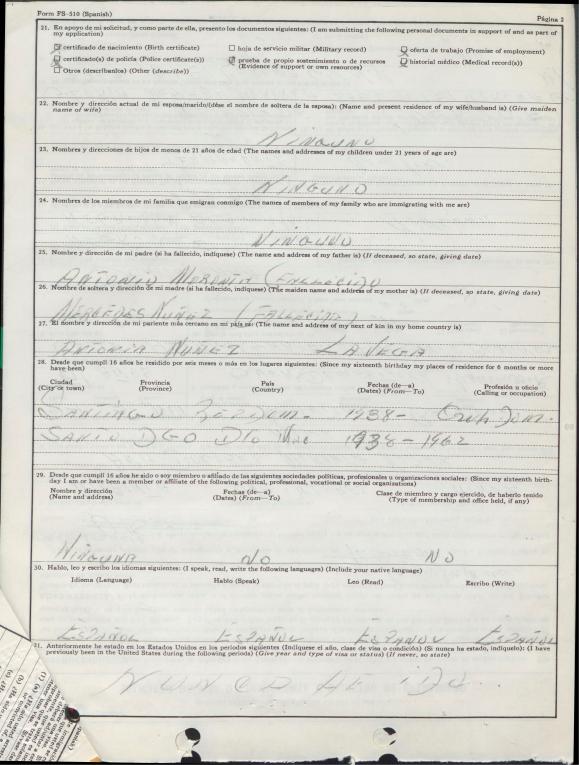 Form FS-510 (Spanish)
Página 2
21. En apoyo de mi solicitud, y como parte de ella, presento los documentos siguientes: (I am submitting the following personal documents in support of and as part of my application)
certificado de nacimiento (Birth certificate)
hoja de servicio militar (Military record)
oferta de trabajo (Promise of employment)
certificado(s) de policía (Police certificate(s))
prueba de propio sostenimiento o de recursos (Evidence of support or own resources)
historial médico (Medical record(s))
Otros (descríbanlos) (Other (describe))
22. Nombre y dirección actual de mi esposa/marido/(dése el nombre de soltera de la esposa): (Name and present residence of my wife/husband is) (Give maiden name of wife)
NINGUNO
23. Nombres y direcciones de hijos de menos de 21 años de edad (The names and addresses of my children under 21 years of age are)
NINGUNO
24. Nombres de los miembros de mi familia que emigran conmigo (The names of members of my family who are immigrating with me are)
NINGUNO
25. Nombre y dirección de mi padre (si ha fallecido, indíquese) (The name and address of my father is) (If deceased, so state, giving date)
ANTONIO (FALLECIDO
26. Nombre de soltera y dirección de mi madre (si ha fallecido, indíquese) (The maiden name and address of my mother is) (If deceased, so state, giving date)
MERCEDES NUÑEZ (FALLECIDA)
27. El nombre y dirección de mi pariente más cercano en mi país es: (The name and address of my next of kin in my home country is)
ANTONIA NUÑEZ LA VEGA
28. Desde que cumplí 16 años he residido por seis meses o más en los lugares siguientes: (Since my sixteenth birthday my places of residence for 6 months or more have been)
Ciudad (City or town)
Provincia (Province)
País (Country)
Fechas (de—a) (Dates) (From—To)
Profesión u oficio (Calling or occupation)
SANTIAGO 1938-
SANTO DGO 1938-1962
29. Desde que cumplí 16 años he sido o soy miembro o afiliado de las siguientes sociedades políticas, profesionales u organizaciones sociales: (Since my sixteenth birthday I am or have been a member or affiliate of the following political, professional, vocational or social organizations)
Nombre y dirección (Name and address)
Fechas (de—a) (Dates) (From—To)
Clase de miembro y cargo ejercido, de haberlo tenido (Type of membership and office held, if any)
NINGUNA NO NO
30. Hablo, leo y escribo los idiomas siguientes: (I speak, read, write the following languages) (Include your native language)
Idioma (Language)
Hablo (Speak)
Leo (Read)
Escribo (Write)
ESPAÑOL ESPAÑOL ESPAÑOL ESPAÑOL
31. Anteriormente he estado en los Estados Unidos en los períodos siguientes (Indíquese el año, clase de visa o condición) (Si nunca ha estado, indíquelo): (I have previously been in the United States during the following periods) (Give year and type of visa or status) (If never, so state)
NUNCA HE IDO